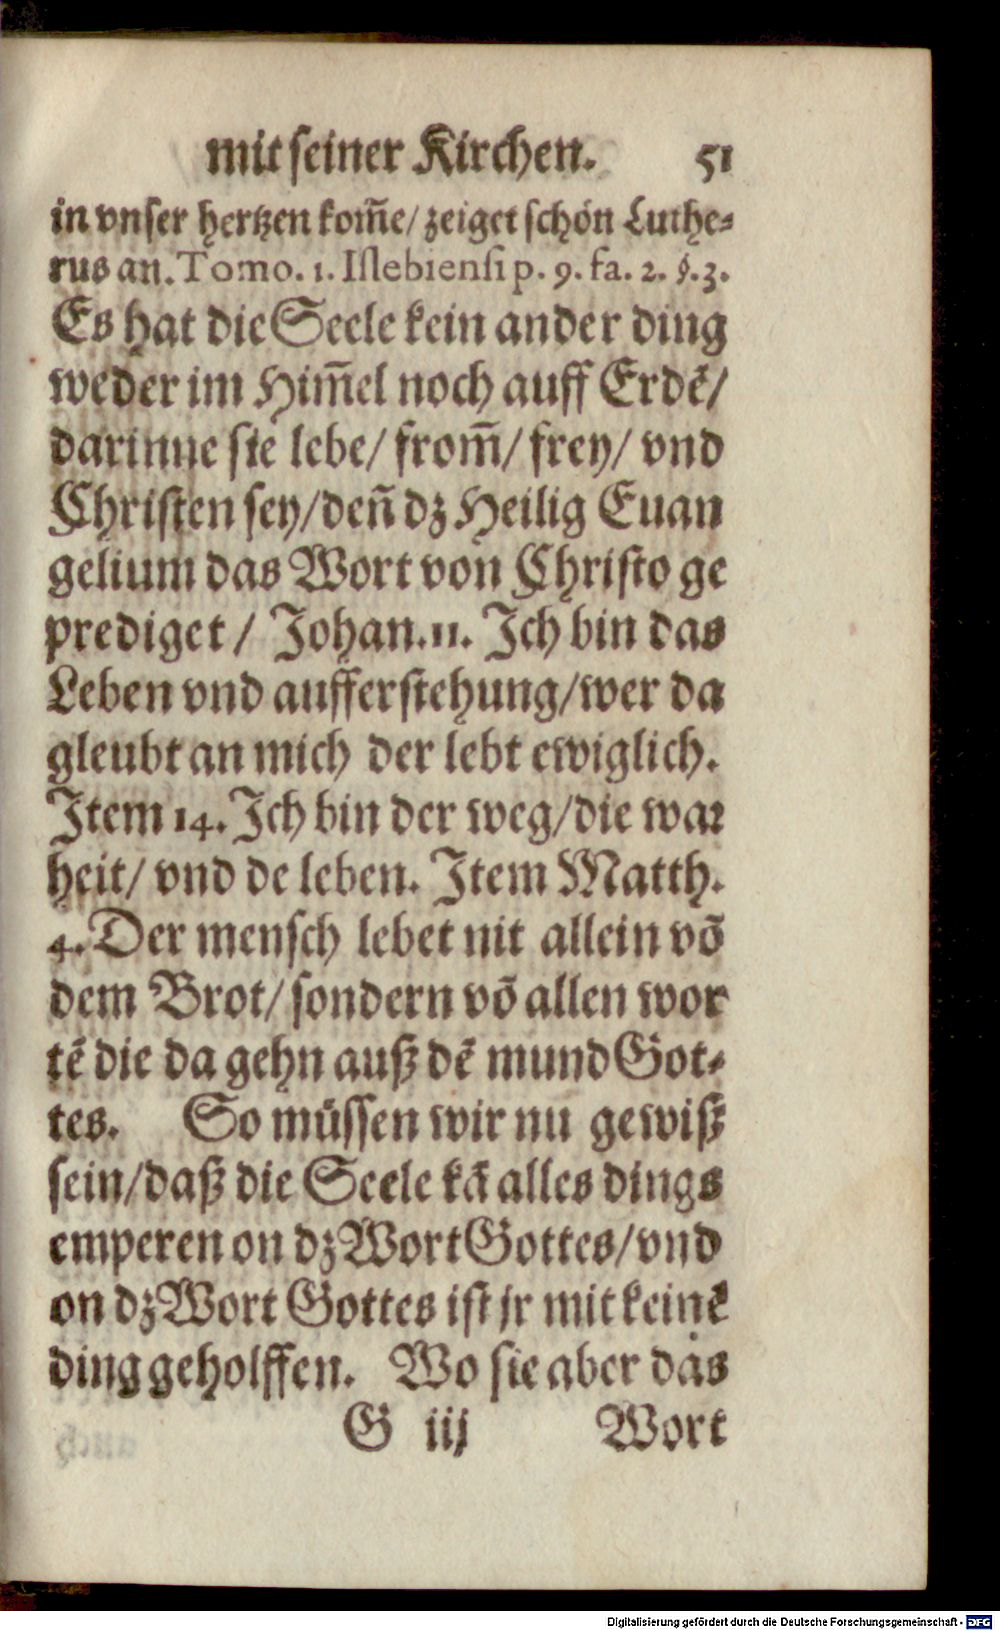 mit seiner Kirchen. 51
in vnser hertzen kom̃e/ zeiget schön Luthe-
rus an. Tomo. 1. Islebiensi p. 9. fa. 2. §. 3.
Es hat die Seele kein ander ding
weder im Him̃el noch auff Erdẽ/
darinne sie lebe/ from̃/ frey/ vnd
Christen sey/ deñ dz Heilig Euan
gelium das Wort von Christo ge
prediget/ Johan. 11. Ich bin das
Leben vnd aufferstehung/ wer da
gleubt an mich der lebt ewiglich.
Item 14. Ich bin der weg/ die war
heit/ vnd de leben. Item Matth.
4. Der mensch lebet nit allein võ
dem Brot/ sondern võ allen wor
tẽ die da gehn auß dẽ mund Got-
tes. So müssen wir nu gewiß
sein/ daß die Seele kã alles dings
emperen on dz Wort Gottes/ vnd
on dz Wort Gottes ist jr mit keinẽ
ding geholffen. Wo sie aber das
G iij Wort
Digitalisierung gefördert durch die Deutsche Forschungsgemeinschaft - DFG